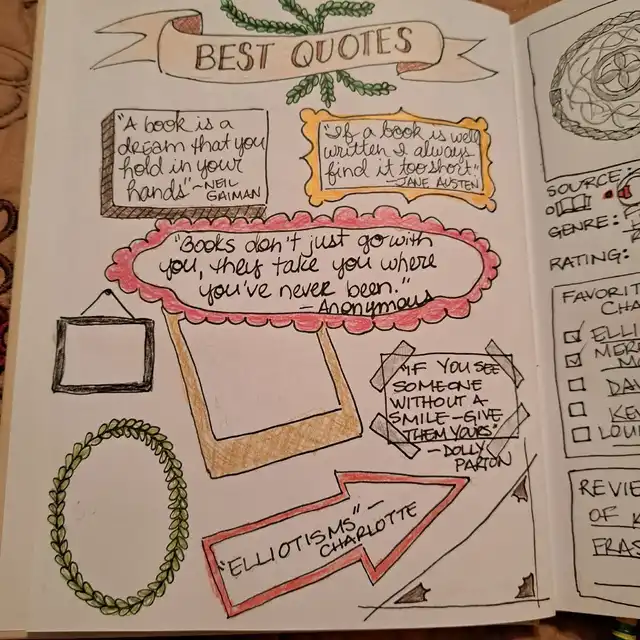 BEST QUOTES
"A book is a
dream that you
hold in your
hands" ~NEIL
GAIMAN
"If a book is well
written I always
find it too short."
—JANE AUSTEN
"Books don't just go with
you, they take you where
you've never been."
—Anonymous
"IF YOU SEE
SOMEONE
WITHOUT A
SMILE-GIVE
THEM YOURS"
—DOLLY
PARTON
"ELLIOTISMS"—
CHARLOTTE
SOURCE:
GENRE:
RATING:
FAVORIT
CHA
ELLI
MER
M
DAV
KE
LOU
REVIE
OF K
FRAS